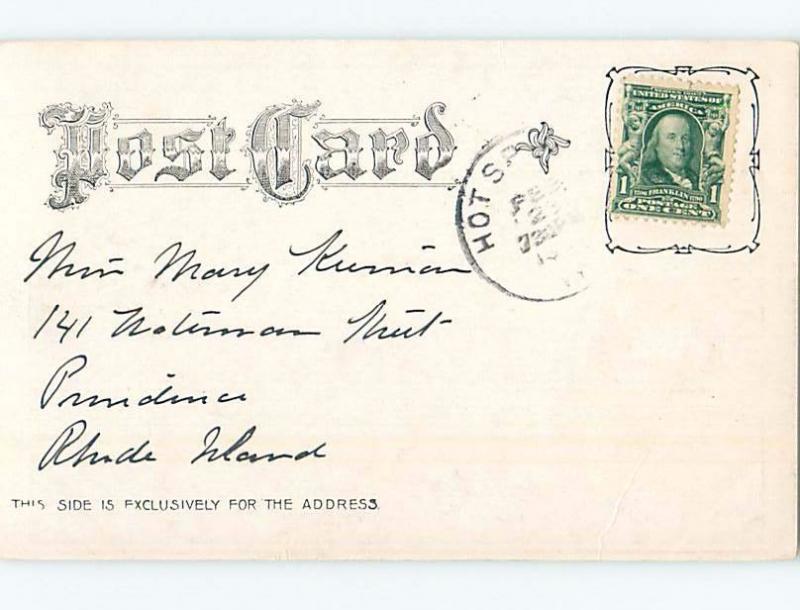 Post Card
HOT SP
SERIES 1902
UNITED STATES OF
AMERICA
1 FRANKLIN 1
POSTAGE
ONE CENT
Miss Mary Kiernan
141 Waterman Street
Providence
Rhode Island
THIS SIDE IS EXCLUSIVELY FOR THE ADDRESS.